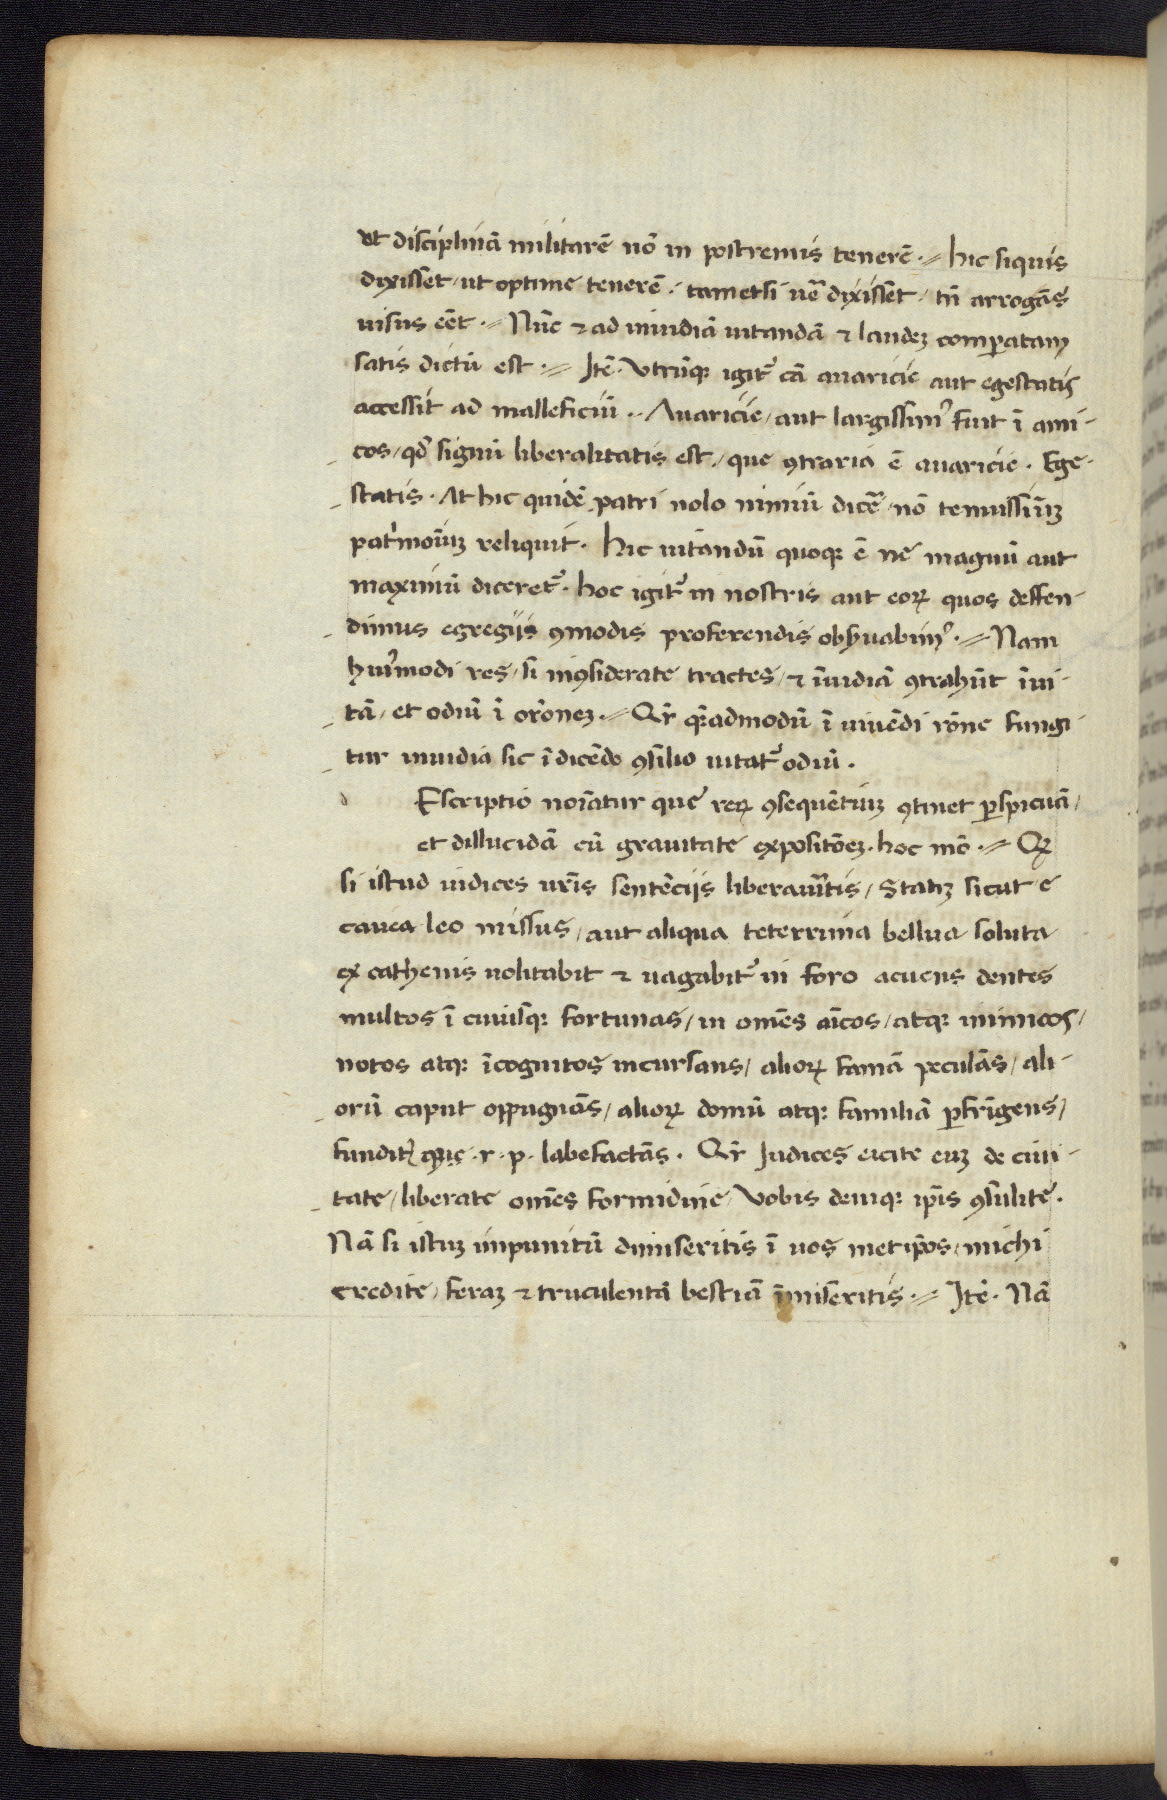 ut disciplinā militarē nō in postremis tenerē·// hic siquis
dixisset/ ut optime tenerē· tametsi ue͛ dixisset/ tn̄ arrogās
uisus eēt·// Nūc ⁊ ad inuidiā uitandā ⁊ laudeꝫ comꝑatam
satis dictū est·// Itē· Vtrūqꝫ igit᷑ cā auaricie aut egestatis
accessit ad malleficiū·· Auaricie/ aut largissimꝰ fuit ī ami-
cos/ qđ signū liberalitatis est/ que ꝯtraria ē auaricie· Ege-
statis· At hic quidē patri nolo nimiū dice͛/ nō tenuissīuꝫ
patͥmoīuꝫ reliquit· Hic uitandū quoqꝫ ē ne magnū aut
maximū diceret᷑· hoc igit᷑ in nostris aut eoꝝ quos deffen-
dimus egregijs ꝯmodis proferendis obẜuabimꝰ·// Nam
huiꝰmodi res/ si inꝯsiderate tractes/ ⁊ īuidiā ꝯtrahūt ī ui-
tā/ et odiū ī orōneꝫ·// Qr̄ qͣ̄admodū ī uiuēdi rōne fungi
tur inuidia sic ī dicēdo ꝯsilio uitat᷑ odiū·
d Escriptio noīatur que reꝝ ꝯsequētiuꝫ ꝯtinet ꝑspicuā/
et dillucidā cū grauitate expositōeꝫ· hoc mō·// Qꝫ
si istud iudices ur̄is sentēcijs liberau͛itis/ Statiꝫ sicut e
cauea leo missus/ aut aliqua teterrima bellua soluta
ex cathenis uolitabit ⁊ uagabit᷑ in foro acuens dentes
multos ī cuiusqꝫ fortunas/ in omēs aīcos/ atqꝫ inimicos/
notos atqꝫ īcognitos incursans/ alioꝝ famā peculās/ ali-
orū caput oppugnās/ alioꝝ domū atqꝫ familiā ꝑfrīgens/
funditꝰ qꝫ r· p· labefactās· Qr̄ Iudices eicite euꝫ de ciui-
tate/ liberate omēs formidine/ Vobis deniqꝫ ip̄is ꝯsulite·
Nā si istuꝫ impunitū dimiseritis ī uos metip̄os/ michi
credite/ feraꝫ ⁊ truculentā bestiā īmiseritis·// Itē· Nā